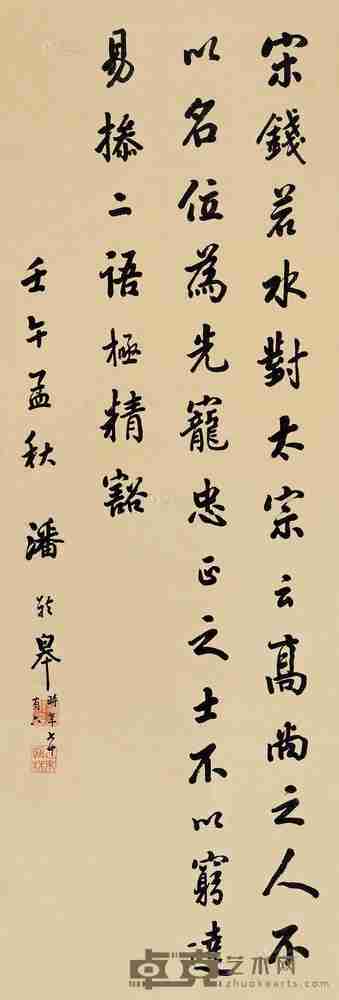 宋錢若水對太宗云高尚之人不
以名位為先寵忠正之士不以窮達
易操二語極精豁
壬午孟秋 潘齡皋
時年七十
有六
卓克艺术网
www.zhuokearts.com